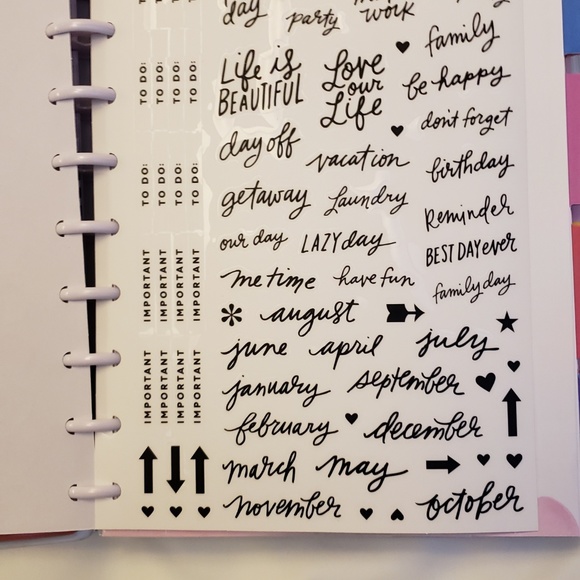 day party work
family
TO DO: TO DO: TO DO: TO DO:
Life is
BEAUTIFUL
Love
our
Life
be happy
don't forget
day off
vacation
birthday
TO DO: TO DO: TO DO: TO DO:
getaway
laundry
Reminder
our day
LAZY day
BEST DAY ever
IMPORTANT IMPORTANT IMPORTANT IMPORTANT
me time
have fun
family day
august
june
april
july
IMPORTANT IMPORTANT IMPORTANT IMPORTANT
january
september
february
december
march
may
november
october